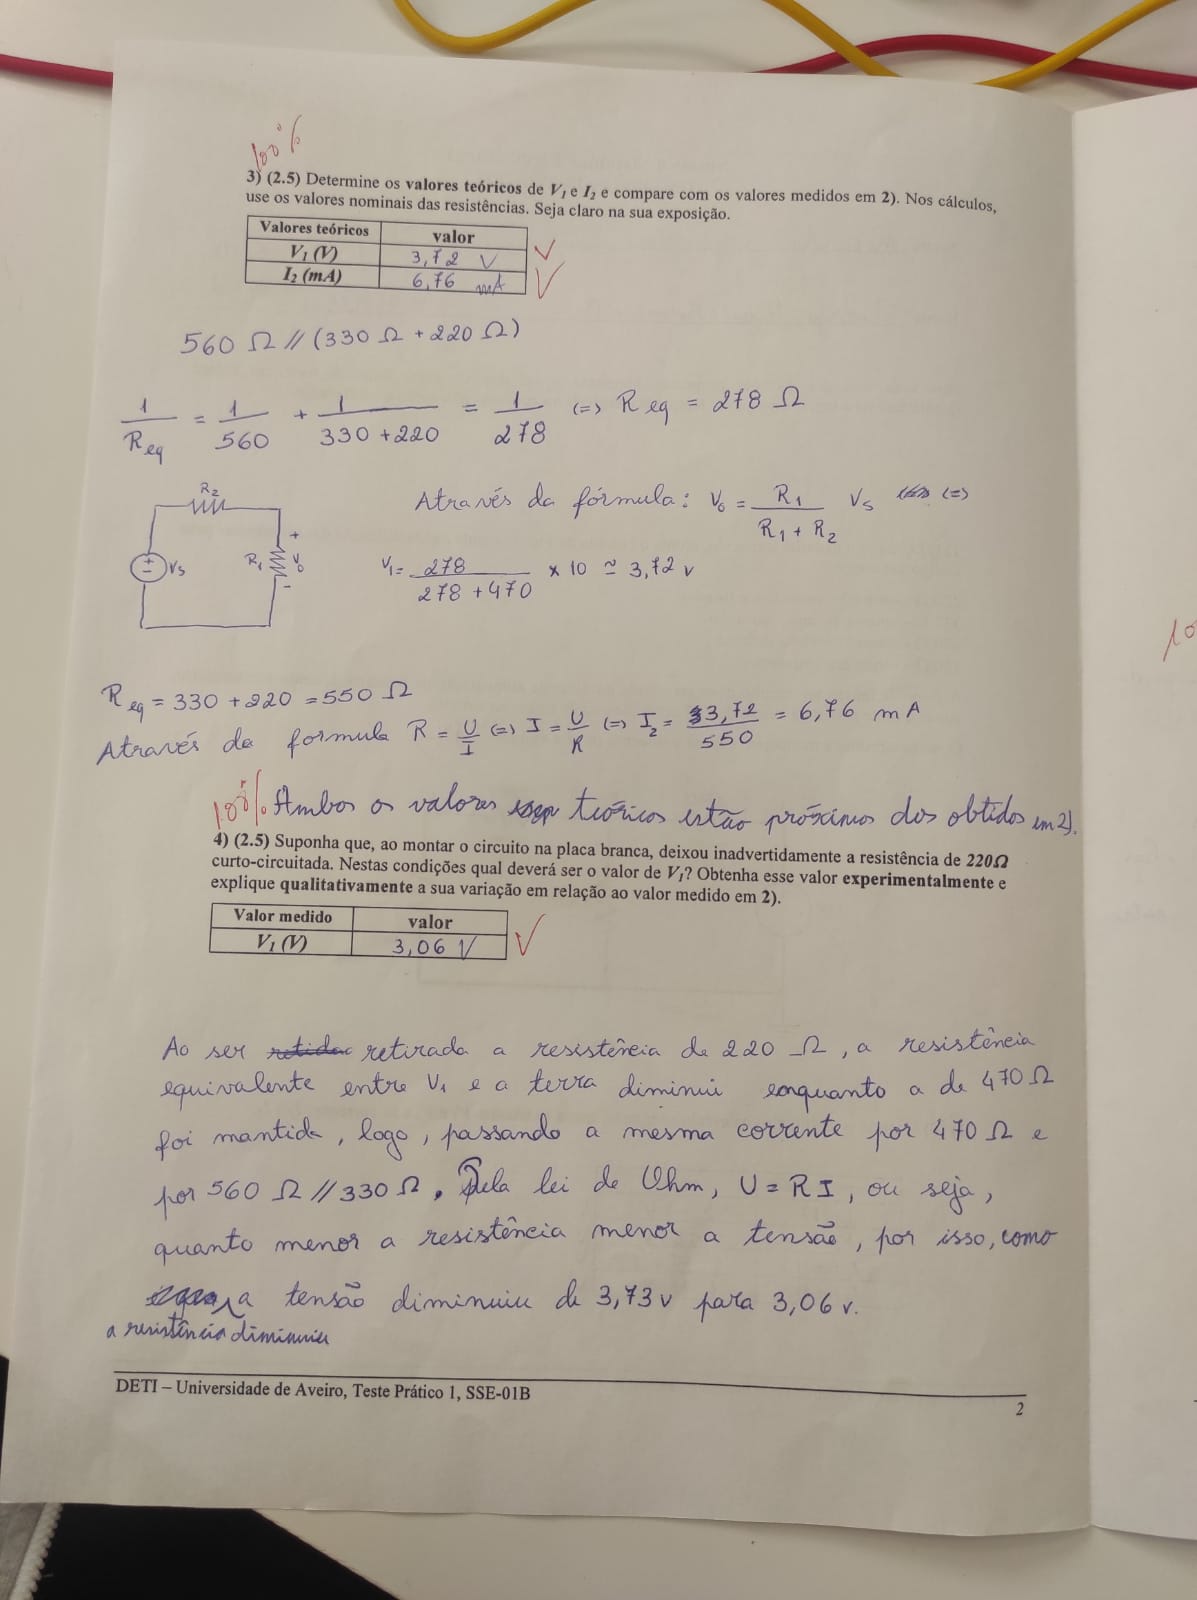 100%
3) (2.5) Determine os valores teóricos de V1 e I2 e compare com os valores medidos em 2). Nos cálculos,
use os valores nominais das resistências. Seja claro na sua exposição.
Valores teóricos valor
V1 (V) 3,72 V
I2 (mA) 6,76 mA
560 Ω // (330 Ω + 220 Ω)
1/Req = 1/560 + 1/(330+220) = 1/278 (=) Req = 278 Ω
R2
Vs R1 + Vo -
Através da fórmula: Vo = R1/(R1 + R2) Vs (=)
V1 = 278/(278+470) x 10 ≃ 3,72 v
10
Req = 330 + 220 = 550 Ω
Através da formula R = U/I (=) I = U/R (=) I2 = 3,72/550 = 6,76 mA
100% Ambos os valores teóricos estão próximos dos obtidos em 2).
4) (2.5) Suponha que, ao montar o circuito na placa branca, deixou inadvertidamente a resistência de 220Ω
curto-circuitada. Nestas condições qual deverá ser o valor de V1? Obtenha esse valor experimentalmente e
explique qualitativamente a sua variação em relação ao valor medido em 2).
Valor medido valor
V1 (V) 3,06 V
Ao ser retirada a resistência de 220 Ω, a resistência
equivalente entre V1 e a terra diminui enquanto a de 470 Ω
foi mantida, logo, passando a mesma corrente por 470 Ω e
por 560 Ω // 330 Ω. Pela lei de Ohm, U = R I, ou seja,
quanto menor a resistência menor a tensão, por isso, como
a resistência diminuiu
a tensão diminuiu de 3,73 v para 3,06 v.
DETI – Universidade de Aveiro, Teste Prático 1, SSE-01B
2